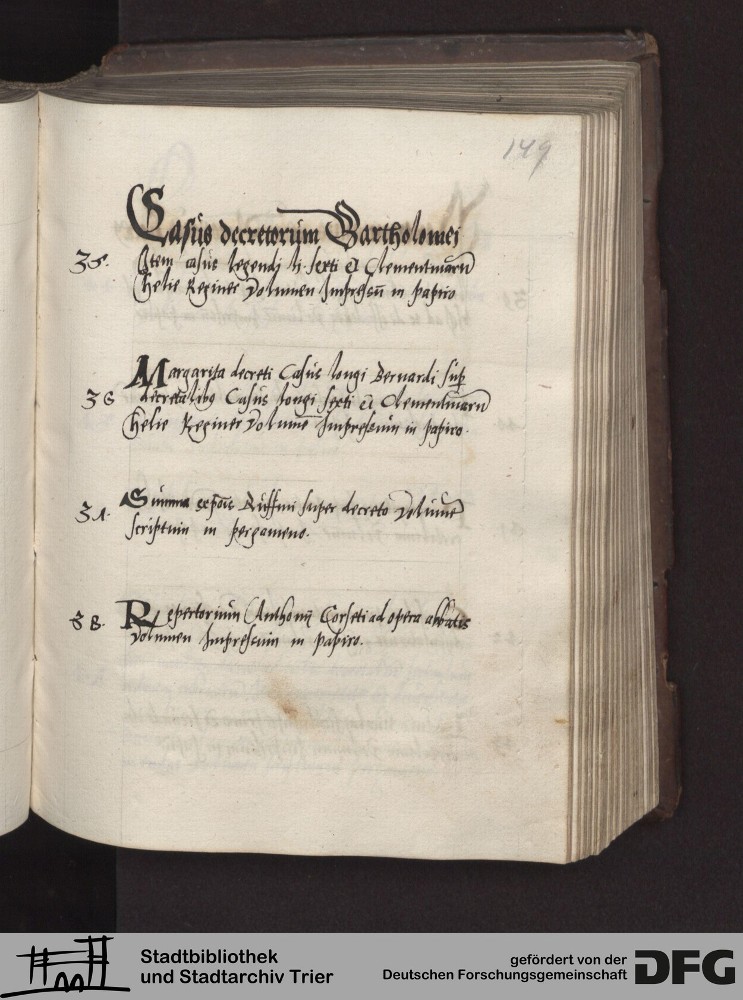 149
Casus decretorum Bartholomei
35. Item casus legendi li. sexti et Clementinarū
Helie Reginer Volumen Impressū in papiro
Margarita decreti Casus longi Bernardi sup
36 decretalibꝫ Casus longi sexti et Clementinarū
Helie Reginer Volumē Impressum in papiro.
Summa Ruffini super decreto Volumē
37. scriptum in pergameno.
38. Repertorium Anthonij Corseti ad opera abbatis
Volumen Impressum in papiro.
Stadtbibliothek
und Stadtarchiv Trier
gefördert von der
Deutschen Forschungsgemeinschaft
DFG